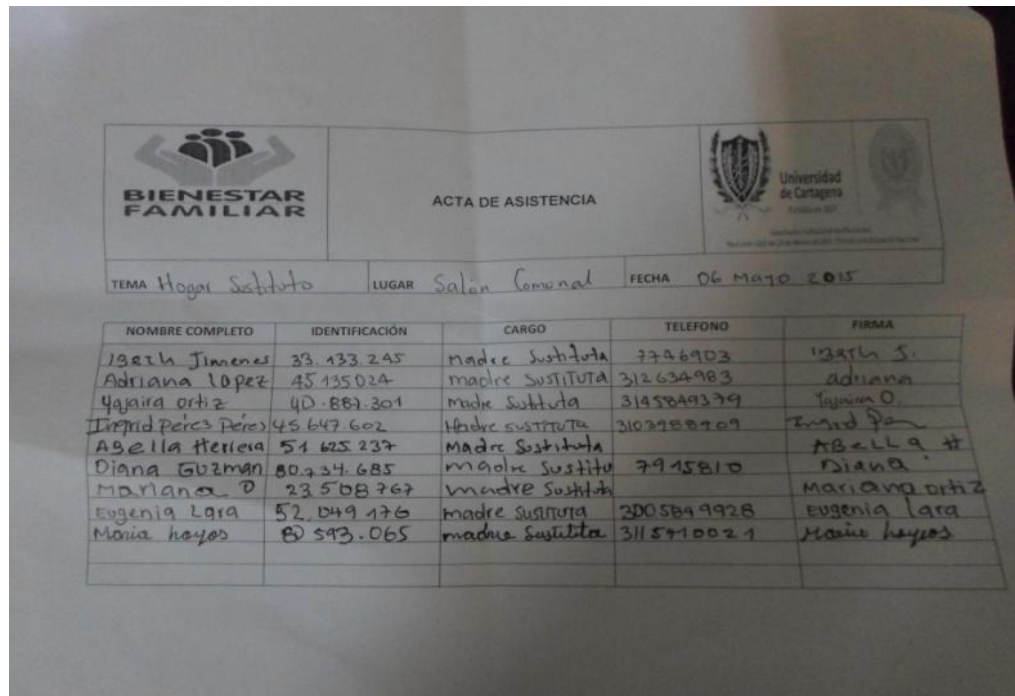 BIENESTAR
FAMILIAR
ACTA DE ASISTENCIA
Universidad
de Cartagena
TEMA Hogar Sustituto LUGAR Salón Comunal FECHA 06 Mayo 2015
NOMBRE COMPLETO IDENTIFICACIÓN CARGO TELEFONO FIRMA
Jimenes 33.133.245 Madre Sustituta 7746903 J.
Adriana lopez 45135024 madre SUSTITUTA 312634983 adriana
Yajaira ortiz 40.887.301 madre Sustituta 3145849379 Yajaira O.
Ingrid Peres Peres 45.647.602 Madre SUSTITUTA 3103988909 Ingrid
ABella Herrera 51 625.237 Madre Sustituta ABeLLa H
Diana GUZman 80.734.685 madre Sustitu 7915810 Diana
Mariana O 23508767 madre Sustituta Mariana ortiz
Eugenia Lara 52.049176 madre sustituta 3005849928 Eugenia Lara
Maria hoyos 593.065 madre Sustituta 3115410021 Maria hoyos